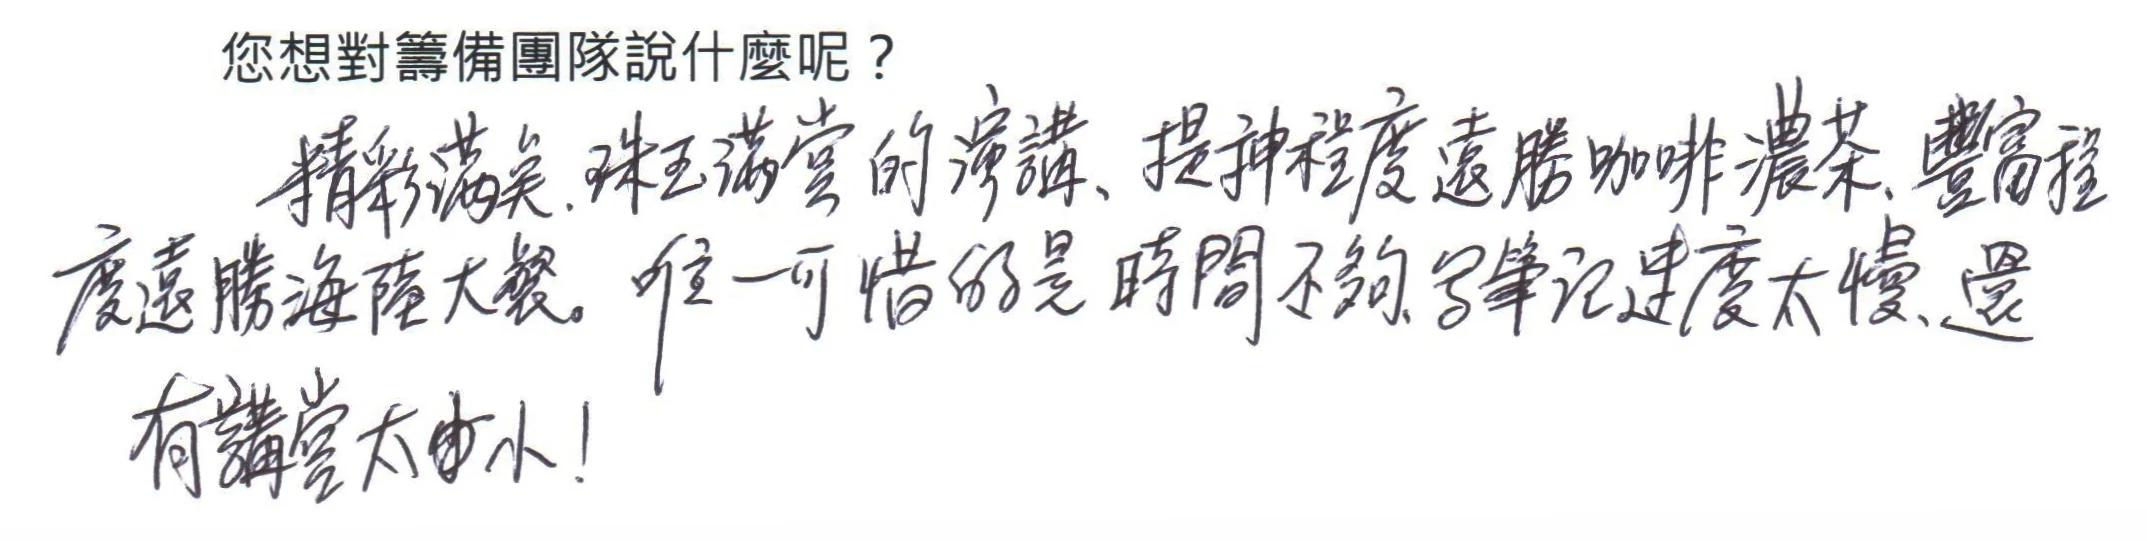 您想對籌備團隊說什麼呢？
精彩滿矣、珠玉滿堂的演講、提神程度遠勝咖啡濃茶、豐富程
度遠勝海陸大餐。唯一可惜的是時間不夠、写筆記速度太慢、還
有講堂太小！